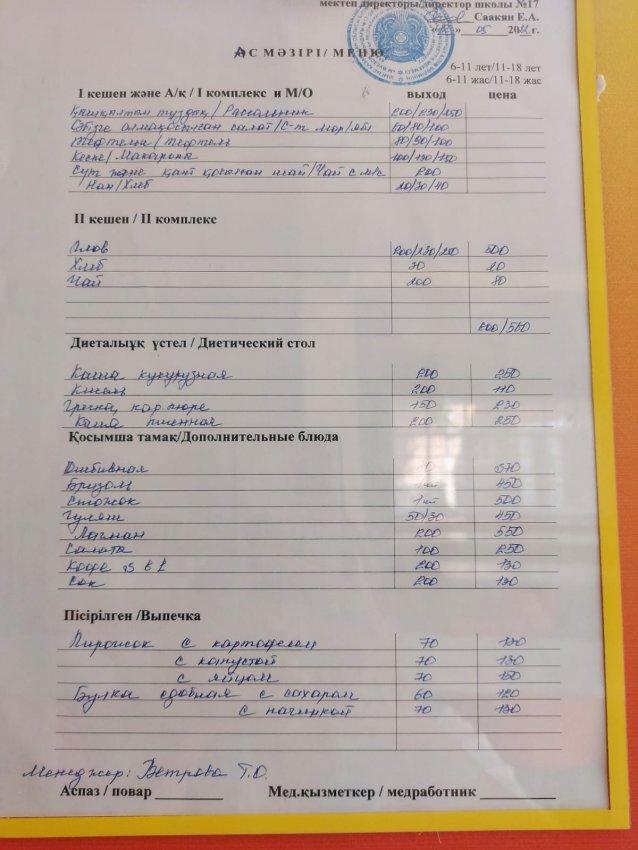 мектеп директоры/директор школы №17
Саакян Е.А.
05 г.
АС МӘЗІРІ/ МЕНЮ
6-11 лет/11-18 лет
6-11 жас/11-18 жас
І кешен және А/қ / І комплекс и М/О выход цена
туздық / Рассольник 200/230/250
салат/С-т 60/80/100
Тефтели / Тефтели 80/90/100
Кеспе/ Макароны 100/130/150
Сүт және қант қосылған шай/Чай с 200
Нан/Хлеб 20/30/40
ІІ кешен / ІІ комплекс
Плов 200/230/250 500
Хлеб 20
Чай 200 80
/560
Диеталыұқ үстел / Диетический стол
Каша кукурузная 200 250
Кисель 200 110
Гречка, кар.пюре 150 230
Каша пшенная 200 250
Қосымша тамақ/Дополнительные блюда
Отбивная 570
Бризоль 1шт 450
Стожок 1шт 500
Гуляш 50/30 450
Лагман 200 550
Салата 100 250
Кофе 3 в 1 200 130
Сок 200 130
Пісірілген /Выпечка
Пирожок с картофелем 70 130
с капустой 70 130
с яйцом 70 150
Булка сдобная с сахаром 60 120
с начинкой 70 130
Менеджер: Ветрова Т.О.
Аспаз / повар Мед.қызметкер / медработник